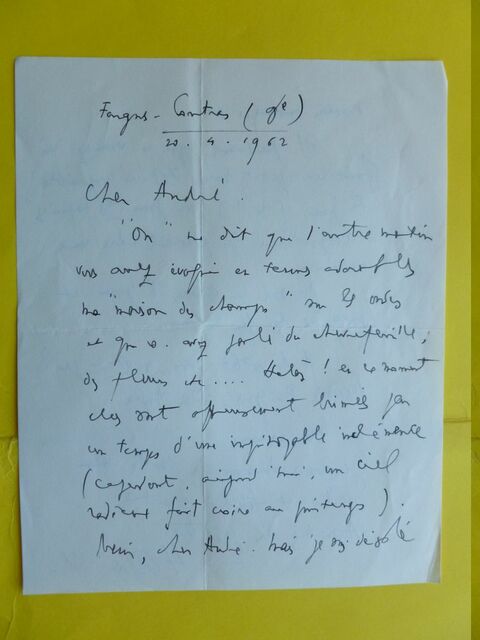 Cher André.
"On" me dit que l'autre matin
vous avez évoqué en termes adorables
ma "maison des champs" sur les ondes
et que v. avez parlé du chèvrefeuille,
des fleurs etc .... Hélas ! en ce moment
elles sont affreusement brimées par
un temps d'une impitoyable inclémence
(cependant, aujourd'hui, un ciel
radieux fait croire au printemps).
Merci, cher André. Mais je suis désolé
20. 4. 1962